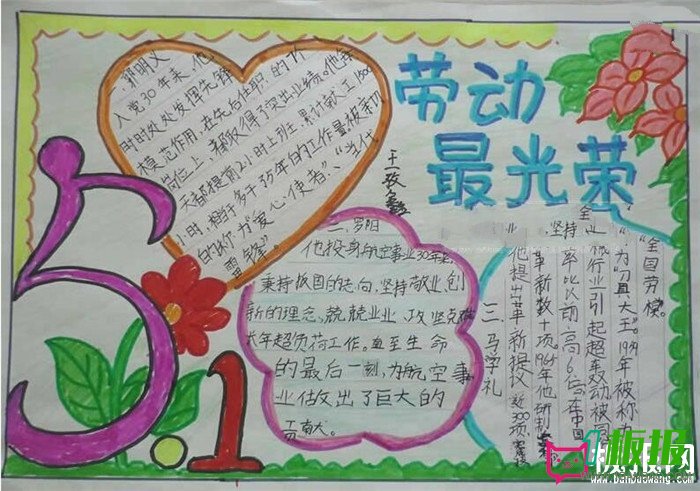 劳动
最光荣
5.1
.郭明义
入党30年来,他
时时处处发挥先锋
模范作用,在先后任职的
岗位上,都取得了突出业绩。他
天都提前2小时上班,累计献工
小时,相当于多干了5年的工作量,被亲切
的称为“爱心使者”、“当代
雷锋”。
二、罗阳
他投身航空事业30年
秉持报国的志向,坚持敬业、创
新的理念,兢兢业业、攻坚克
长年超负荷工作。直至生命
的最后一刻,为航空事
业做出了巨大的
贡献。
三马学礼
他提出革新提议
近300项
坚持革新数十项。1964年他研制
率比以前高6倍。在中国
行业引起轰动被
“为“刀具大王。1979年被称为
“全国劳模。
板报网
www.banbaowang.com